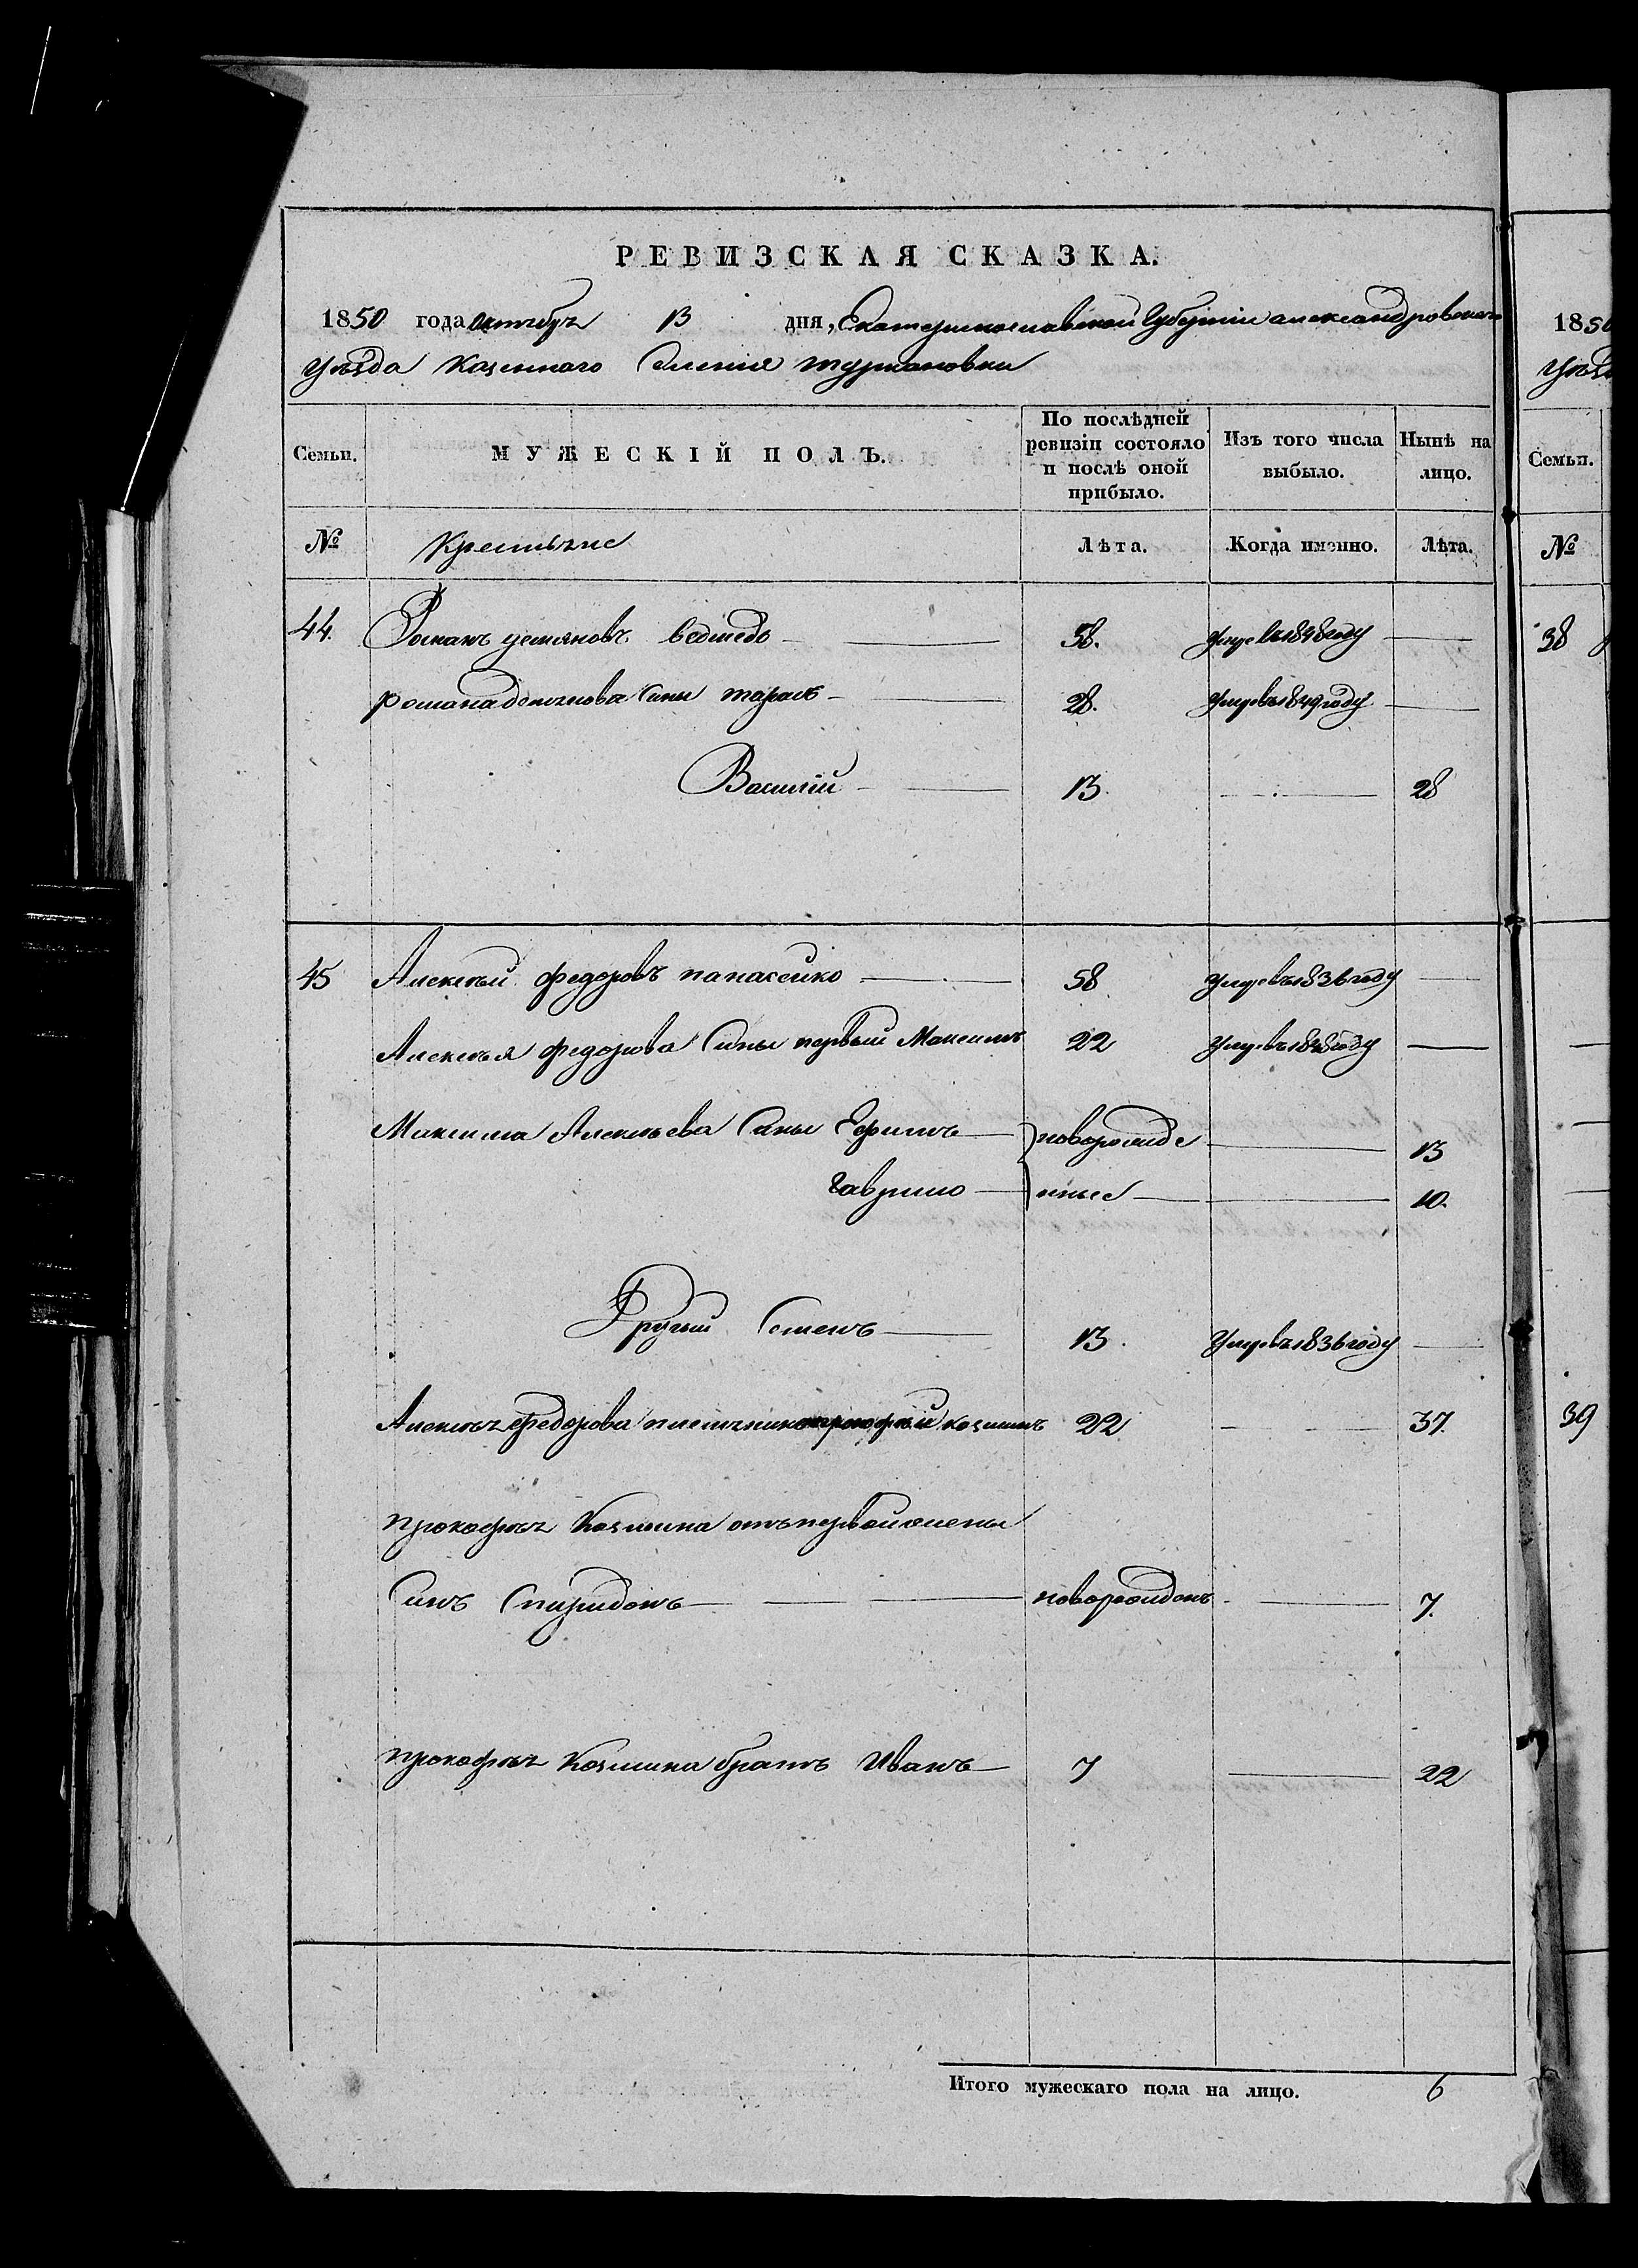 РЕВИЗСКАЯ СКАЗКА.
1850 года октября 13 дня, Екатеринославской Губерніи александровскаго
уѣзда Казеннаго Селенія туркановки
Семьи. МУЖЕСКІЙ ПОЛЪ. По послѣдней ревизіи состояло и послѣ оной прибыло. Изъ того числа выбыло. Нынѣ на лицо.
№ Крестьяне Лѣта. Когда именно. Лѣта.
44. Романъ ведмедь 58. умре въ 1848 году
Романа сины тарасъ 28. умре въ 1849 году
Василій 13. 28
45 Алексѣй федоровъ панасенко 58 умре въ 1836 году
Алексѣя федорова Сины первый Максимъ 22 умре въ 1848 году
Максима Алексѣева Сины Ефимъ новорожде 13
Гаврило нные 10.
Другий Семенъ 13. умре въ 1836 году
Алексѣя федорова племянникъ прокофій козминъ 22 37.
прокофія Козмина отъ первой жены
Синъ Спиридонъ новорожденъ 7.
прокофія Козмина братъ Иванъ 7 22
Итого мужескаго пола на лицо. 6
1850
уѣзд
Семьи.
№
38
39